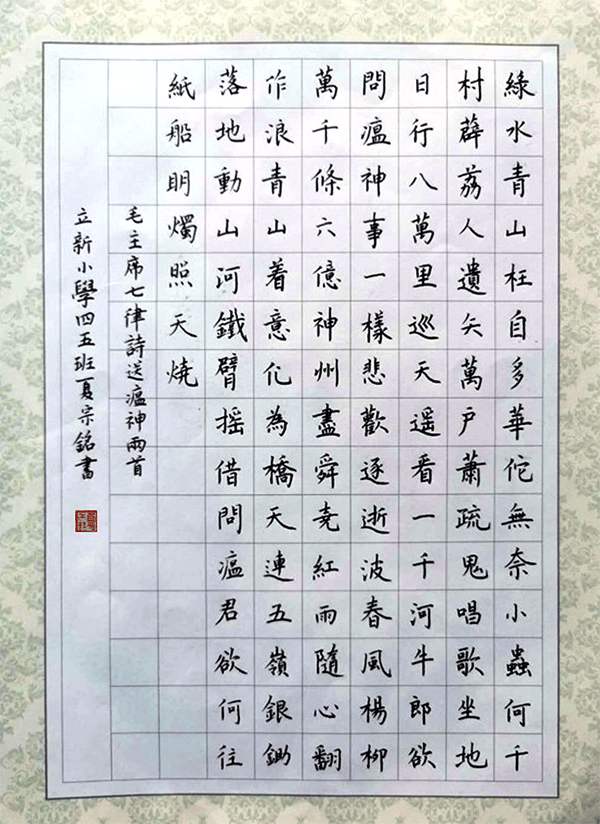 綠水青山枉自多華佗無奈小蟲何千
村薜荔人遺矢萬戶蕭疏鬼唱歌坐地
日行八萬里巡天遥看一千河牛郎欲
問瘟神事一樣悲歡逐逝波春風楊柳
萬千條六億神州盡舜堯紅雨隨心翻
作浪青山着意化為橋天連五嶺銀鋤
落地動山河鐵臂摇借問瘟君欲何往
紙船明燭照天燒
毛主席七律詩送瘟神兩首
立新小學四五班夏宗銘書